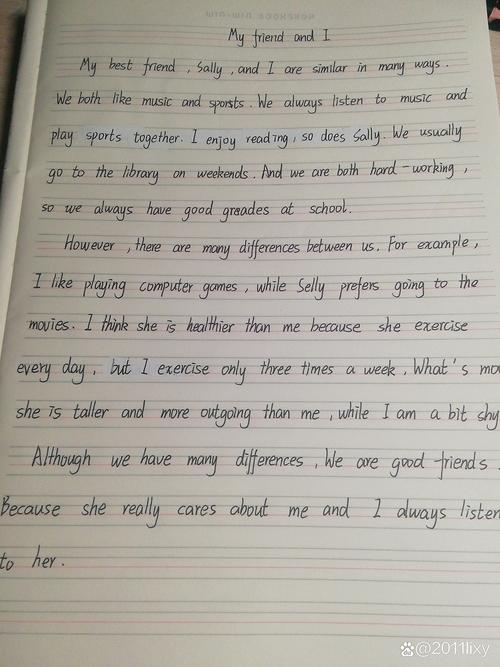 My friend and I
My best friend , Sally , and I are similar in many ways .
We both like music and sports . We always listen to music and
play sports together. I enjoy reading , so does Sally. We usually
go to the library on weekends . And we are both hard-working ,
so we always have good greades at school.
However , there are many differences between us. For example ,
I like playing computer games , while Selly prefers going to the
movies. I think she is healthier than me because she exercise
every day , but I exercise only three times a week . What's mo
she is taller and more outgoing than me , while I am a bit shy
Although we have many differences , We are good friends .
Because she really cares about me and I always listen
to her.
@2011lixy